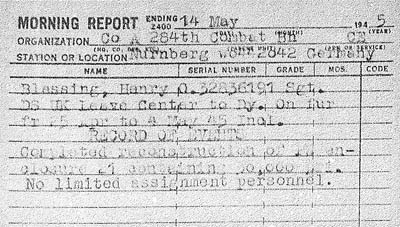 MORNING REPORT ENDING 2400 14 May 194 5 (YEAR)
ORGANIZATION Co A 284th Combat Bn CE
(PARENT UNIT) (ARM OR SERVICE)
STATION OR LOCATION Nurnberg 2842 Germany
NAME SERIAL NUMBER GRADE MOS. CODE
Blessing, Henry O. 32836191 Sgt.
DS UK Leave Center to Dy. On fur
fr Apr to 4 May 45 Incl.
RECORD OF EVENTS
Completed reconstruction of en-
closure containing
No limited assignment personnel.